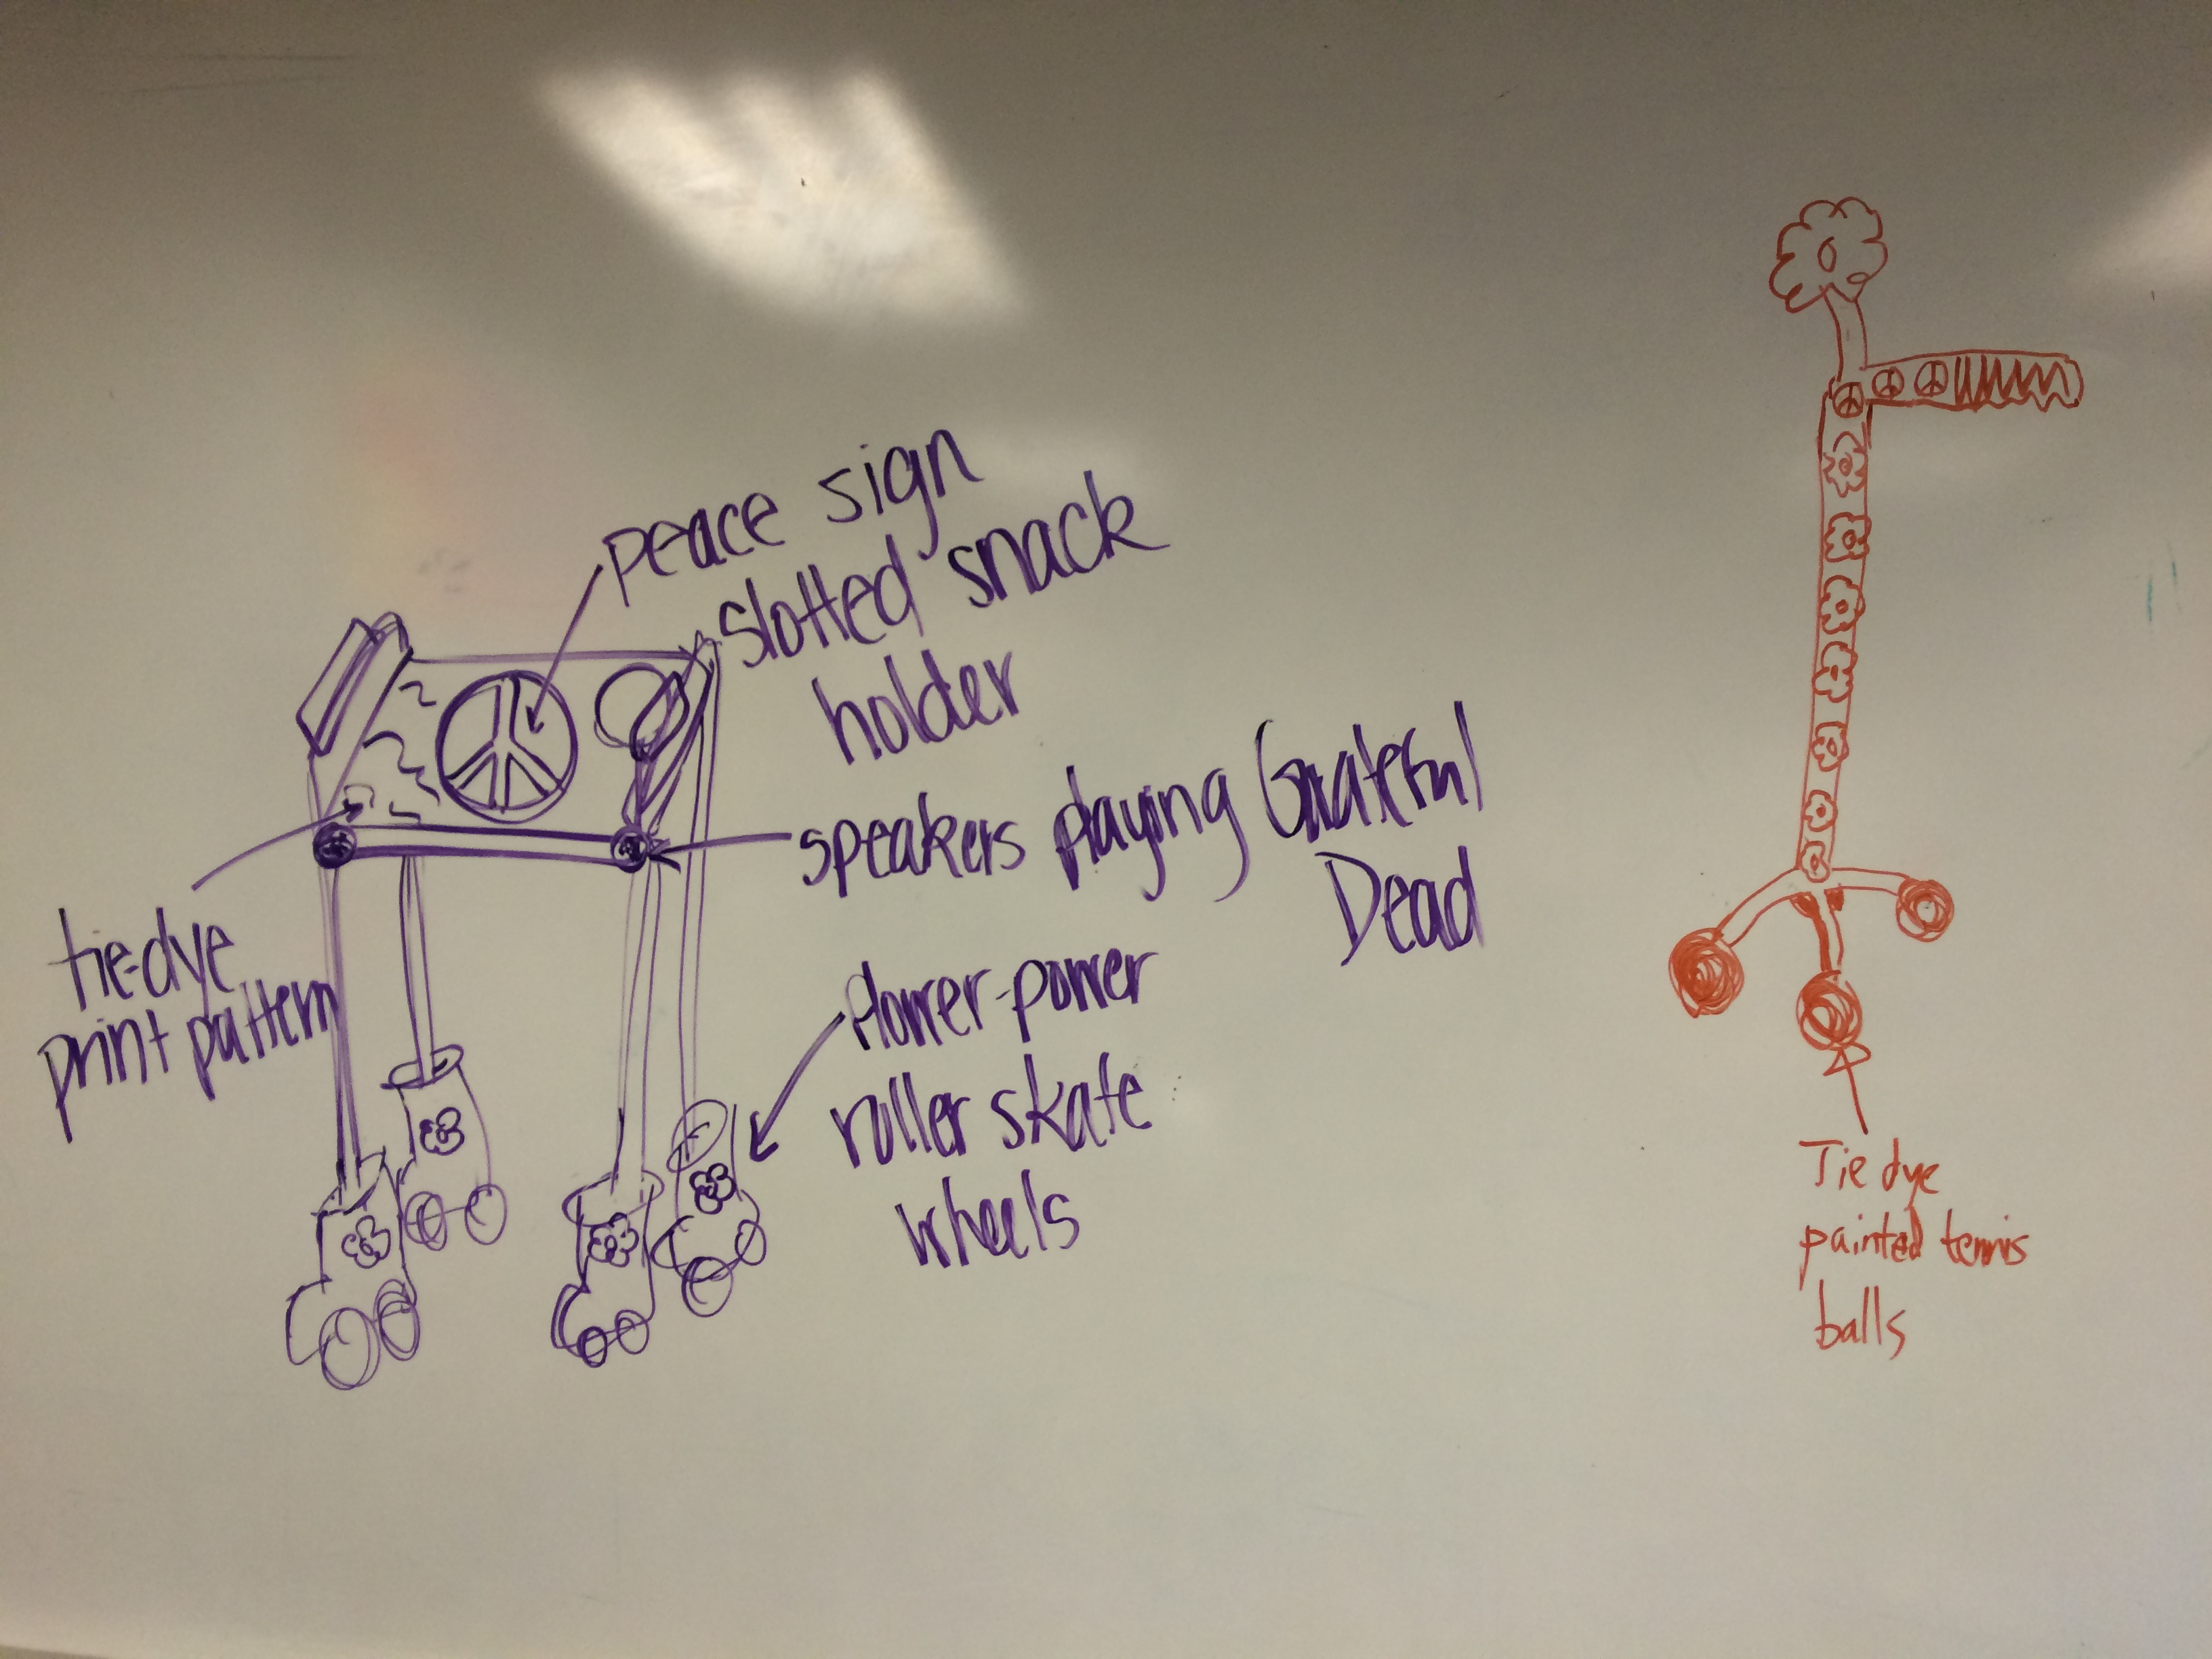 peace sign
slotted snack
holder
speakers playing Grateful
Dead
tie-dye
print pattern
flower-power
roller skate
wheels
Tie dye
painted tennis
balls